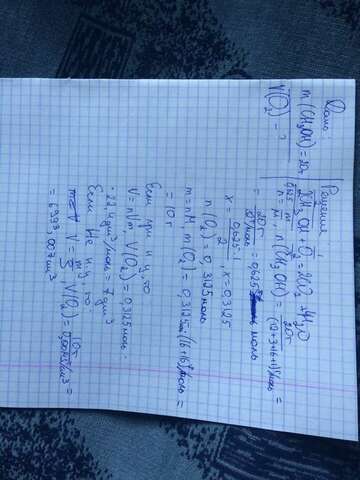 Дано:
m (CH₃OH) = 20г
V(O₂) - ?
Решение
2CH₃OH + O₂ = 2CO₂ + 4H₂O
n = m/M, n(CH₃OH) = 20г/(12+3+16+1)г/моль =
= 20г/32г/моль = 0,625 моль
x = 0,625·1/2, x = 0,3125
n(O₂) = 0,3125 моль
m = nM, m(O₂) = 0,3125·(16+16)г/моль =
= 10г
Если при н.у., то
V = nVm, V(O₂) = 0,3125 моль ·
· 22,4 дм³/моль = 7 дм³
Если не н.у., то
V = m/ρ, V(O₂) = 10г/0,00143г/см³ =
= 6993,007 см³